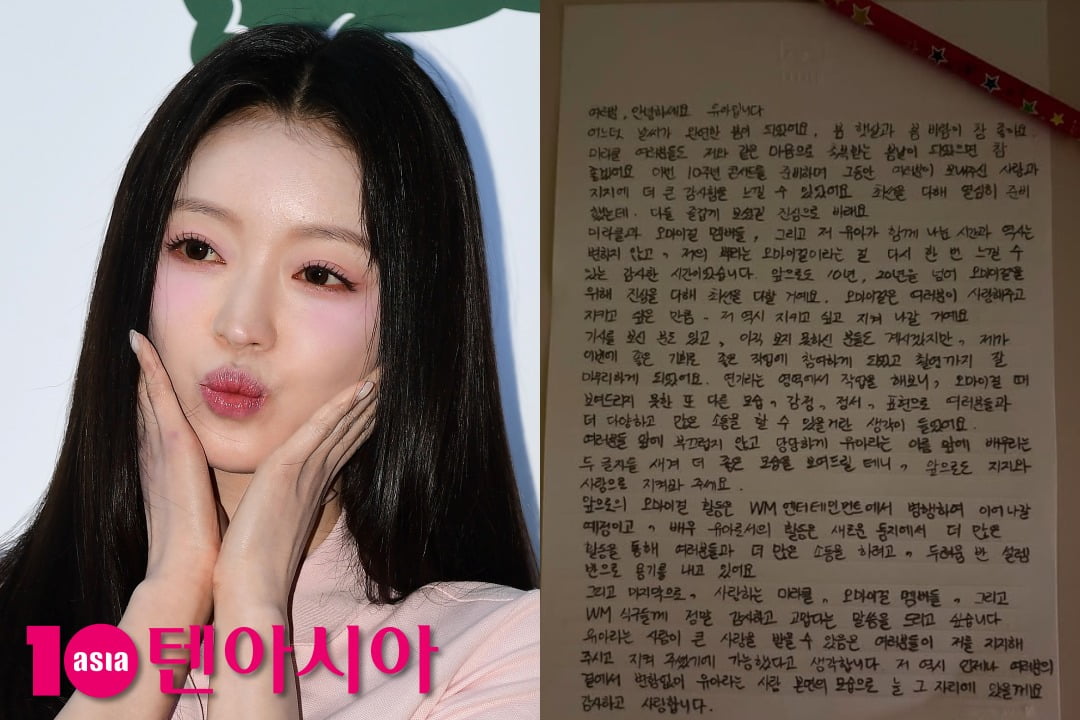 10
asia
텐아시아
여러분, 안녕하세요 유아입니다
어느덧 날씨가 완연한 봄이 되었어요, 봄 햇살과 봄 바람이 참 좋아요.
미라클 여러분들도 저와 같은 마음으로 행복한 봄날이 되었으면 참
좋겠어요 이번 10주년 콘서트를 준비하며 그동안 여러분이 보내주신 사랑과
지지에 더 큰 감사함을 느낄 수 있었어요 최선을 다해 열심히 준비
했는데. 다들 즐겁게 보셨길 진심으로 바래요
미라클과 오마이걸 멤버들, 그리고 저 유아가 함께 나눈 시간과 역사는
변하지 않고, 저의 뿌리는 오마이걸이라는 걸 다시 한 번 느낄 수
있는 감사한 시간이었습니다. 앞으로도 10년, 20년을 넘어 오마이걸을
위해 진심을 다해 최선을 다할 거예요. 오마이걸은 여러분이 사랑해주고
지키고 싶은 만큼 - 저 역시 지키고 싶고 지켜 나갈 거예요
기사를 보신 분도 있고, 아직 보지 못하신 분들도 계시겠지만, 제가
이번에 좋은 기회로 좋은 작업에 참여하게 되었고 촬영까지 잘
마무리하게 되었어요. 연기라는 영역에서 작업을 해보니, 오마이걸 때
보여드리지 못한 또 다른 모습, 감정, 정서, 표현으로 여러분들과
더 다양하고 많은 소통을 할 수 있을거란 생각이 들었어요.
여러분들 앞에 부끄럽지 않고 당당하게 유아라는 이름 앞에 배우라는
두 글자를 새겨 더 좋은 모습을 보여드릴 테니, 앞으로도 지지와
사랑으로 지켜봐 주세요.
앞으로의 오마이걸 활동은 WM 엔터테인먼트에서 병행하여 이어나갈
예정이고, 배우 유아로서의 활동은 새로운 둥지에서 더 많은
활동을 통해 여러분들과 더 많은 소통을 하려고, 두려움 반 설렘
반으로 용기를 내고 있어요
그리고 마지막으로, 사랑하는 미라클, 오마이걸 멤버들, 그리고
WM 식구들께 정말 감사하고 고맙다는 말씀을 드리고 싶습니다
유아라는 사람이 큰 사랑을 받을 수 있음은 여러분들이 저를 지지해
주시고 지켜 주셨기에 가능했다고 생각합니다. 저 역시 언제나 여러분의
곁에서 변함없이 유아라는 사람 본연의 모습으로 늘 그 자리에 있을게요
감사하고 사랑합니다.